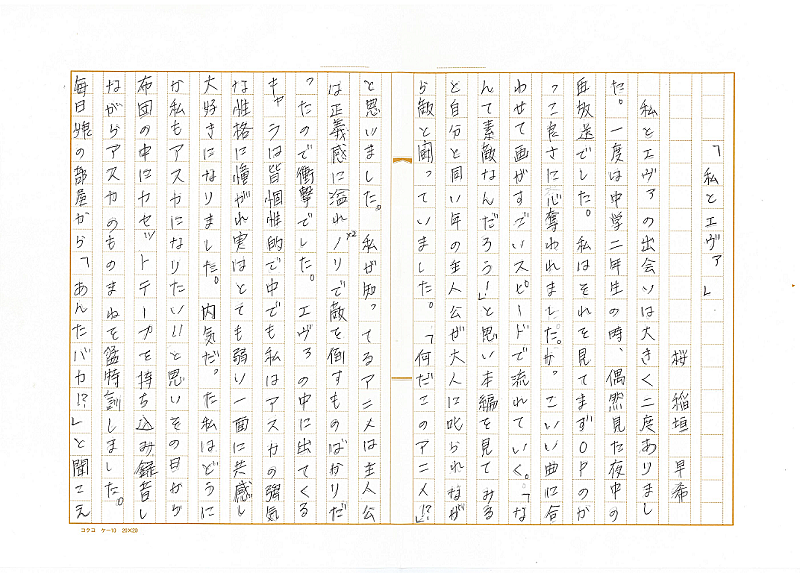 「私とエヴァ」
桜 稲垣 早希
私とエヴァの出会いは大きく二度ありまし
た。一度は中学二年生の時、偶然見た夜中の
再放送でした。私はそれを見てまずOPのか
っこ良さに心奪われました。かっこいい曲に合
わせて画がすごいスピードで流れていく。「な
んて素敵なんだろう!」と思い本編を見てみる
と自分と同い年の主人公が大人に叱られなが
ら敵と闘っていました。「何だこのアニメ!?」
と思いました。私が知ってるアニメは主人公
は正義感に溢れノリノリで敵を倒すものばかりだ
ったので衝撃でした。エヴァの中に出てくる
キャラは皆個性的で中でも私はアスカの強気
な性格に憧がれ実はとても弱い一面に共感し
大好きになりました。内気だった私はどうに
か私もアスカになりたい!!と思いその日から
布団の中にカセットテープを持ち込み録音し
ながらアスカのものまねを猛特訓しました。
毎日娘の部屋から「あんたバカ!?」と聞こえ
コクヨ ケ-10 20×20